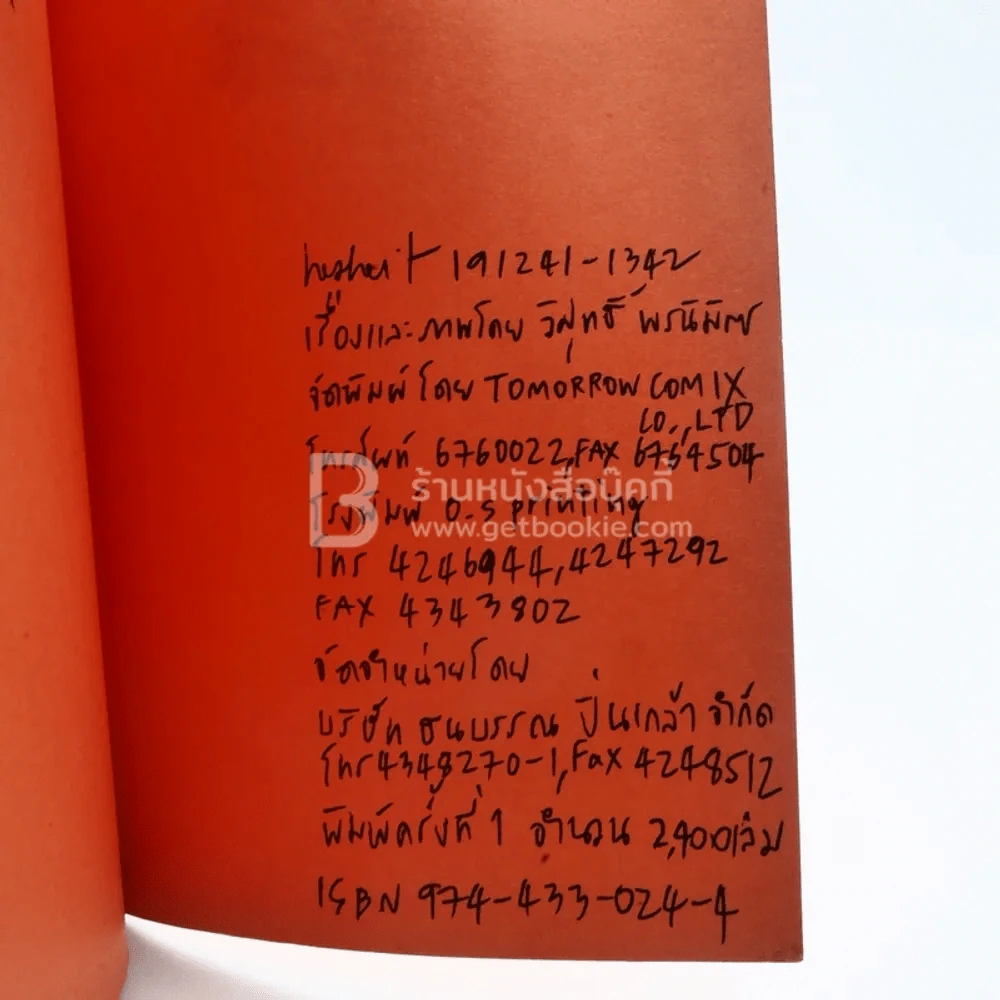 hesheit 191241-1342
เรื่องและภาพโดย วิสุทธิ์ พรนิมิตร
จัดพิมพ์ โดย TOMORROW COMIX
CO., LTD
โทรศัพท์ 6760022, FAX 6764504
ร้านหนังสือบุ๊คกี้
โรงพิมพ์ O.S printing
www.getbookie.com
โทร 4246944, 4247292
FAX 4343802
จัดจำหน่ายโดย
บริษัท ธนบรรณ ปิ่นเกล้า จำกัด
โทร 4348270-1, Fax 4248512
พิมพ์ครั้งที่ 1 จำนวน 2,400 เล่ม
ISBN 974-433-024-4